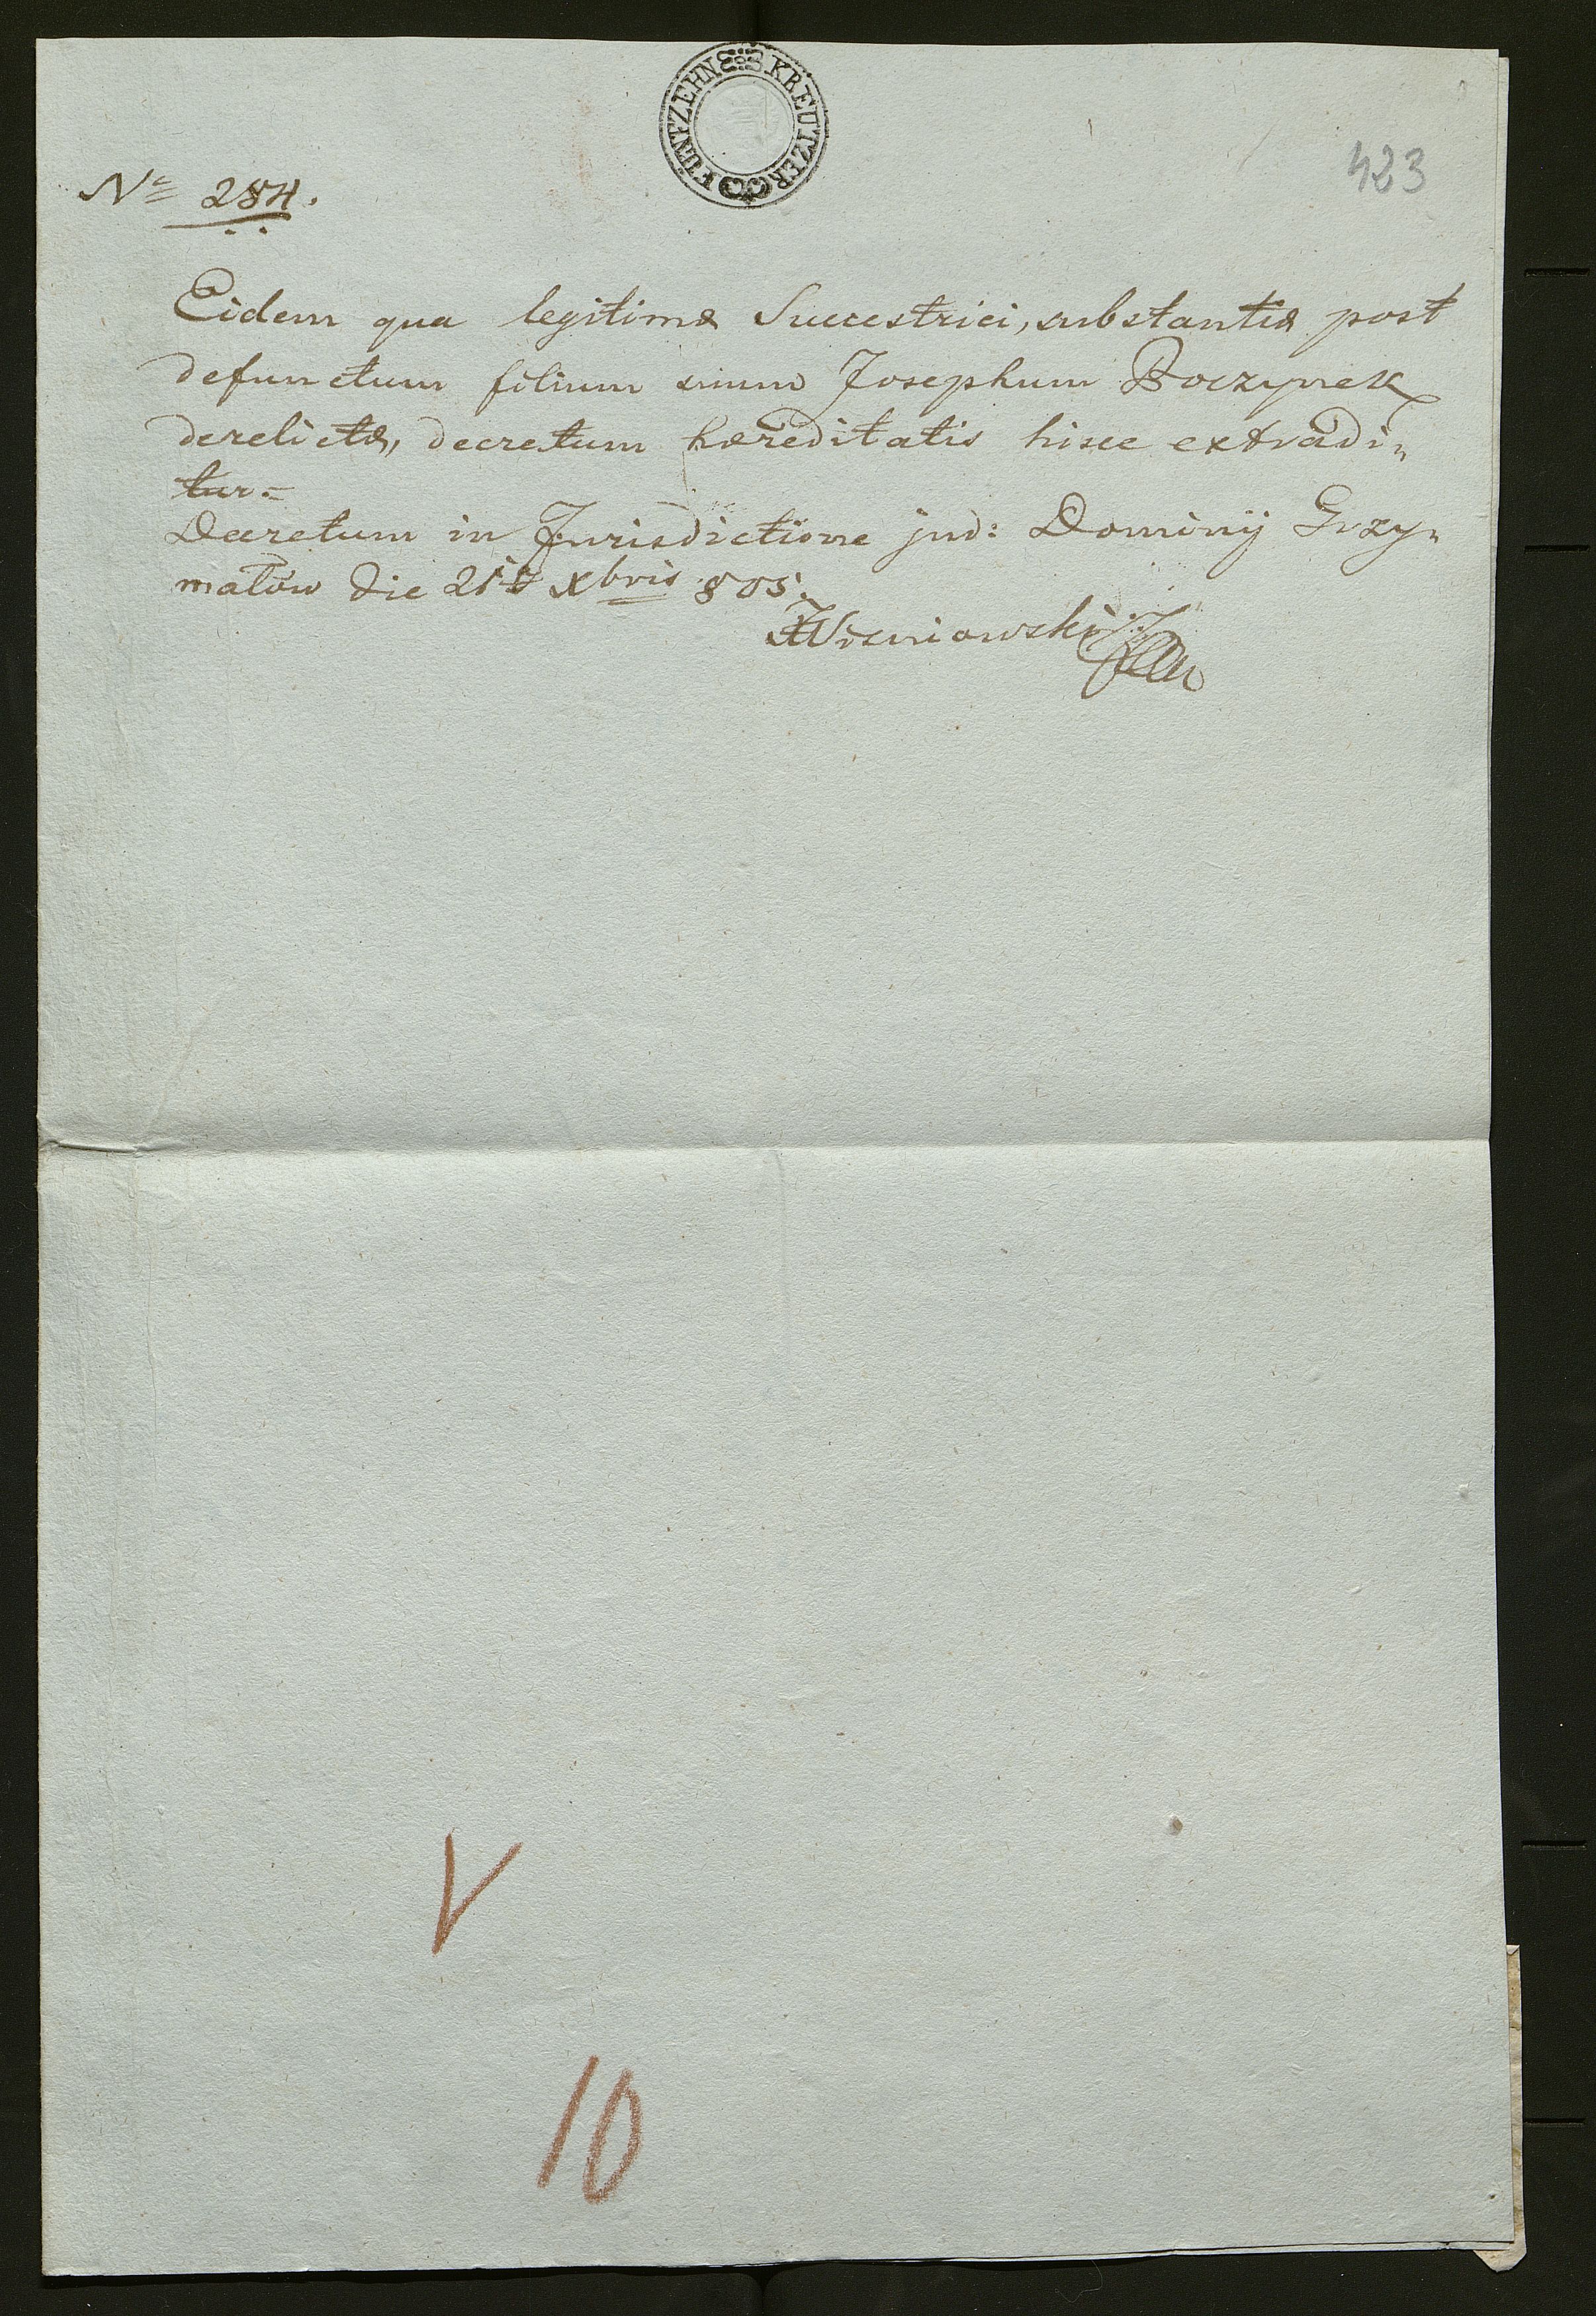 FÜNFZEHN KREUTZER
423
Nº 284.
Eidem qua legitimæ Succestrici, substantiæ post
defunctum filium suum Josephum Boczynek
derelictæ, decretum hæreditatis hisce extradi„
tur.=
Decretum in Jurisdictione jud: Dominij Grzy„
małow die 21 Xbris 805.
Wisniowski
V
10